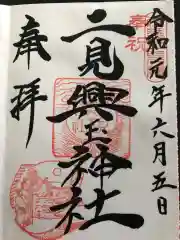 奉祝
令和元年六月五日
二見興玉神社
奉拝